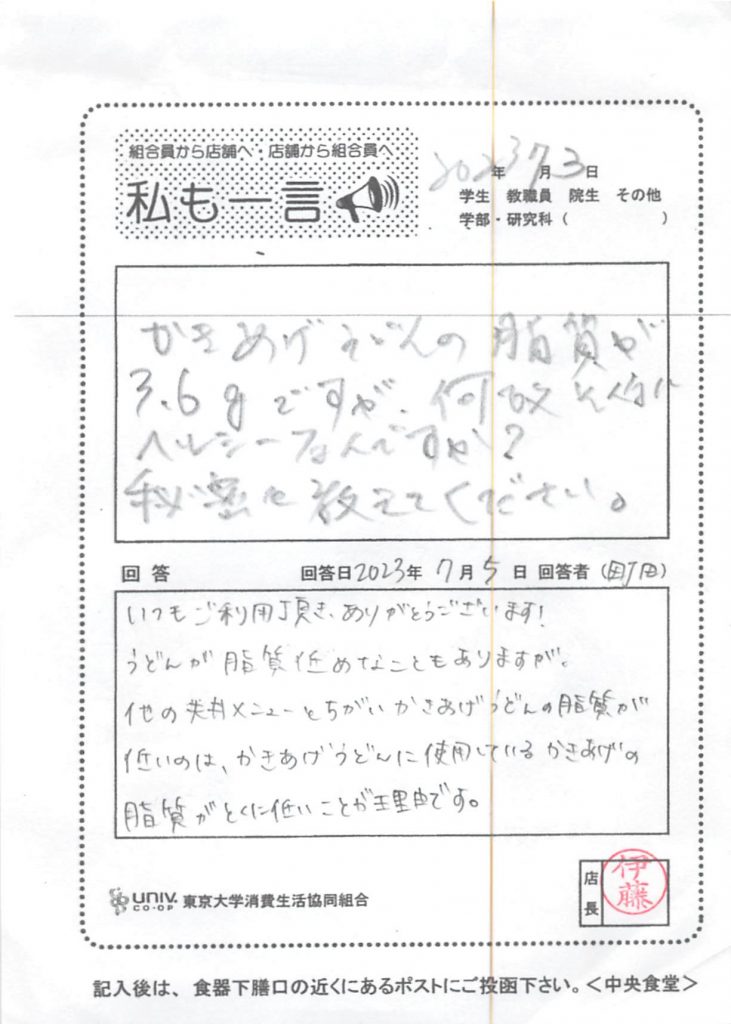 組合員から店舗へ・店舗から組合員へ
私も一言
2023年7月3日
学生 教職員 院生 その他
学部・研究科( )
かきあげうどんの脂質が
3.6gですが、何故そんなに
ヘルシーなんですか?
秘密を教えてください。
回答 回答日2023年7月5日 回答者(町田)
いつもご利用頂き、ありがとうございます!
うどんが脂質低めなこともありますが。
他の丼メニューとちがいかきあげうどんの脂質が
低いのは、かきあげうどんに使用しているかきあげの
脂質がとくに低いことが理由です。
UNIV. CO-OP 東京大学消費生活協同組合
店長 伊藤
記入後は、食器下膳口の近くにあるポストにご投函下さい。<中央食堂>